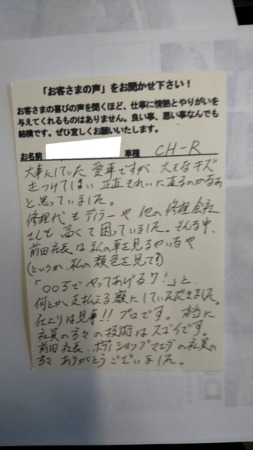 「お客さまの声」をお聞かせ下さい!
お客さまの喜びの声を聞くほど、仕事に情熱とやりがいを
与えてくれるものはありません。良い事、悪い事なんでも
結構です。ぜひ宜しくお願いいたします。
お名前 車種 CH-R
大事にしていた愛車ですが 大きなキズ
をつけてしまい 正直きれいに直るのかなあ
と思っていました。
修理代もディラーや他の修理会社
とても高くて困っていました。そんな中、
前田社長は私の車を見るやいなや
(というか、私の顔色を見て?)
「〇〇円でやってあげる?!」と
何とか支払える額にしていただきました。
仕上りは見事!!プロです。本当に
社員の方々の技術はスゴイです。
前田社長、ボディショップマエダの社員の
方々 ありがとうございました。